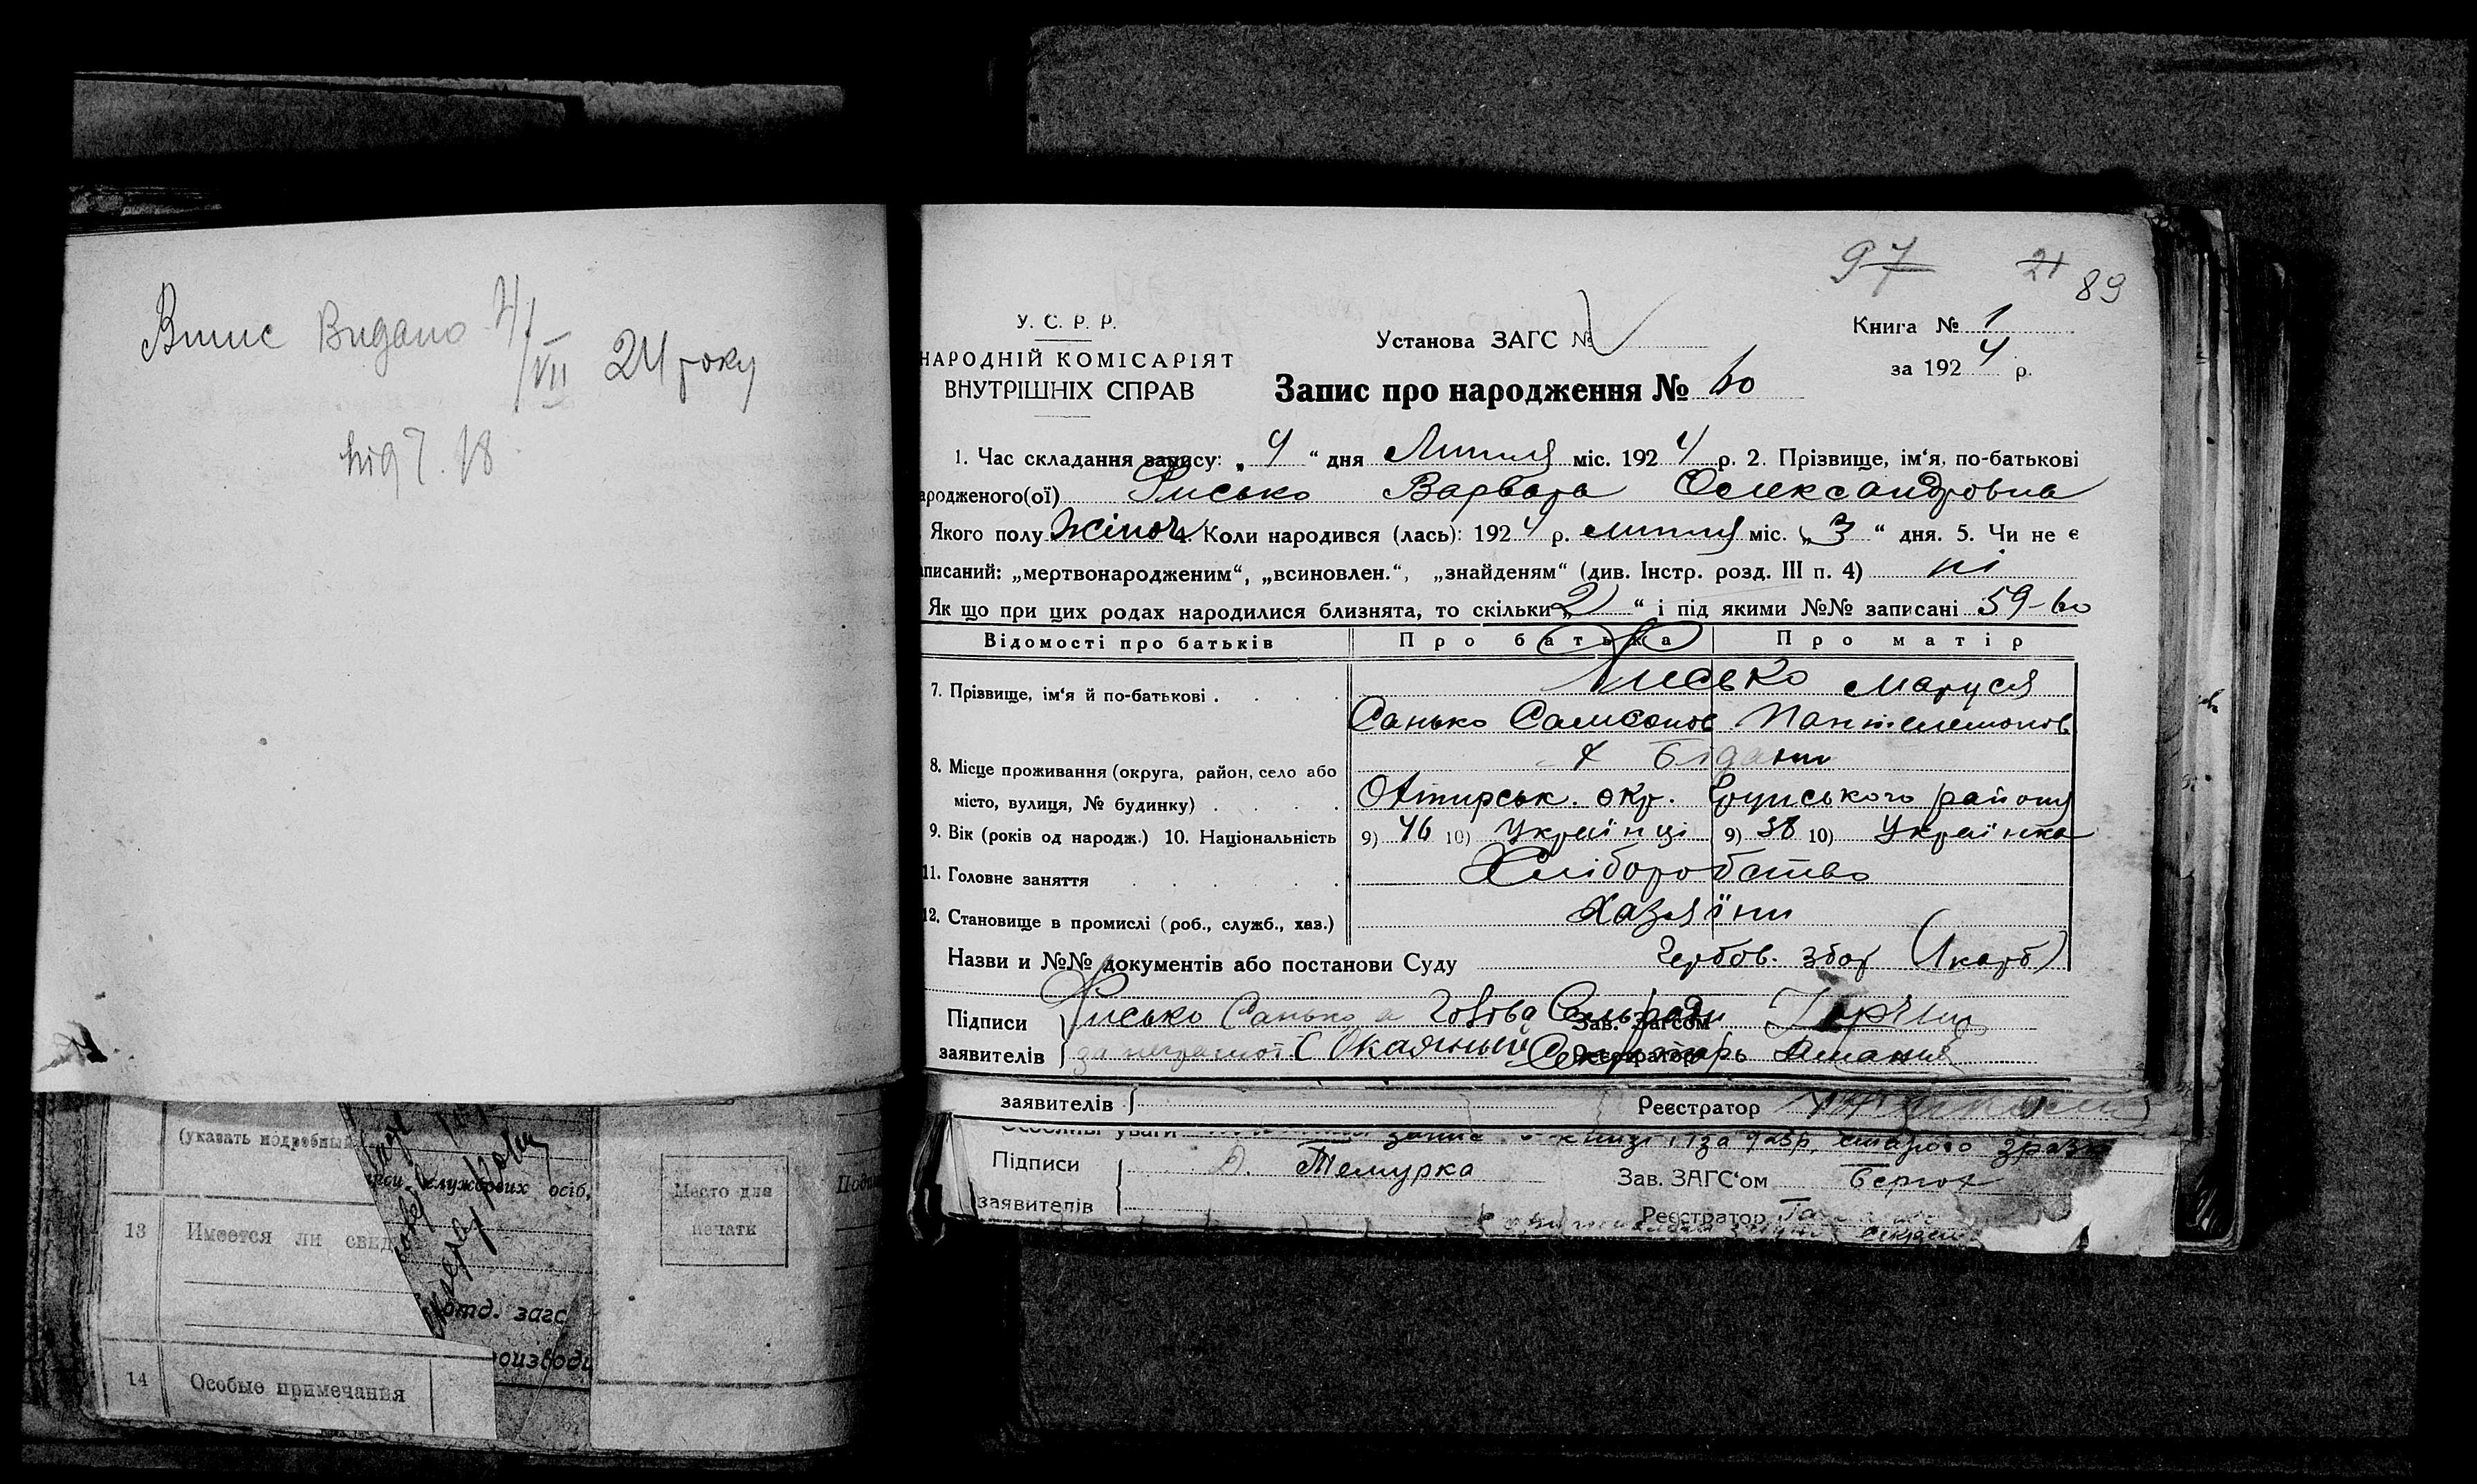 Випис Видано 4/VII 24 року
під № 18
97 21 89
У. С. Р. Р.
НАРОДНІЙ КОМІСАРІЯТ
ВНУТРІШНІХ СПРАВ
Установа ЗАГС №
Книга № 1
за 1924 р.
Запис про народження № 60
1. Час складання запису: „4“ дня Липня міс. 1924 р. 2. Прізвище, ім‘я, по-батькові
ародженого(ої) Лисько Варвара Олександровна
Якого полу Жіноч. 4. Коли народився (лась): 1924 р. липня міс. „3“ дня. 5. Чи не є
аписаний: „мертвонародженим“, „всиновлен.“, „знайденям“ (див. Інстр. розд. III п. 4) ні
Як що при цих родах народилися близнята, то скільки „2“ і під якими №№ записані 59-60
Відомості про батьків Про батька Про матір
7. Прізвище, ім‘я й по-батькові . Лисько Маруся
Санько Самсонов. Пантелемонов
х Бідани
8. Місце проживання (округа, район, село або
місто, вулиця, № будинку) Охтирськ. окр. району
9. Вік (років од народж.) 10. Національність 9) 46 10) Українці 9) 38 10) Українка
11. Головне заняття Хліборобство
12. Становище в промислі (роб., служб., хаз.) Хазяїни
Назви и №№ документів або постанови Суду Гербов. збор (1 карб)
Підписи Лисько Санько а Голова Сельради Зав. Загсом
заявителів за неграмот С Окаянный Секретарь Реєстратор
заявителів Реєстратор
Особливі уваги запис в книзі 1 за 1925р. старого зраз
Підписи Темурка Зав. ЗАГС‘ом
заявителів Реєстратор
(указать подробный
службових осіб,
Место для
печати
13 Имеется ли свид
отд. загс
оизводи
14 Особые примечания